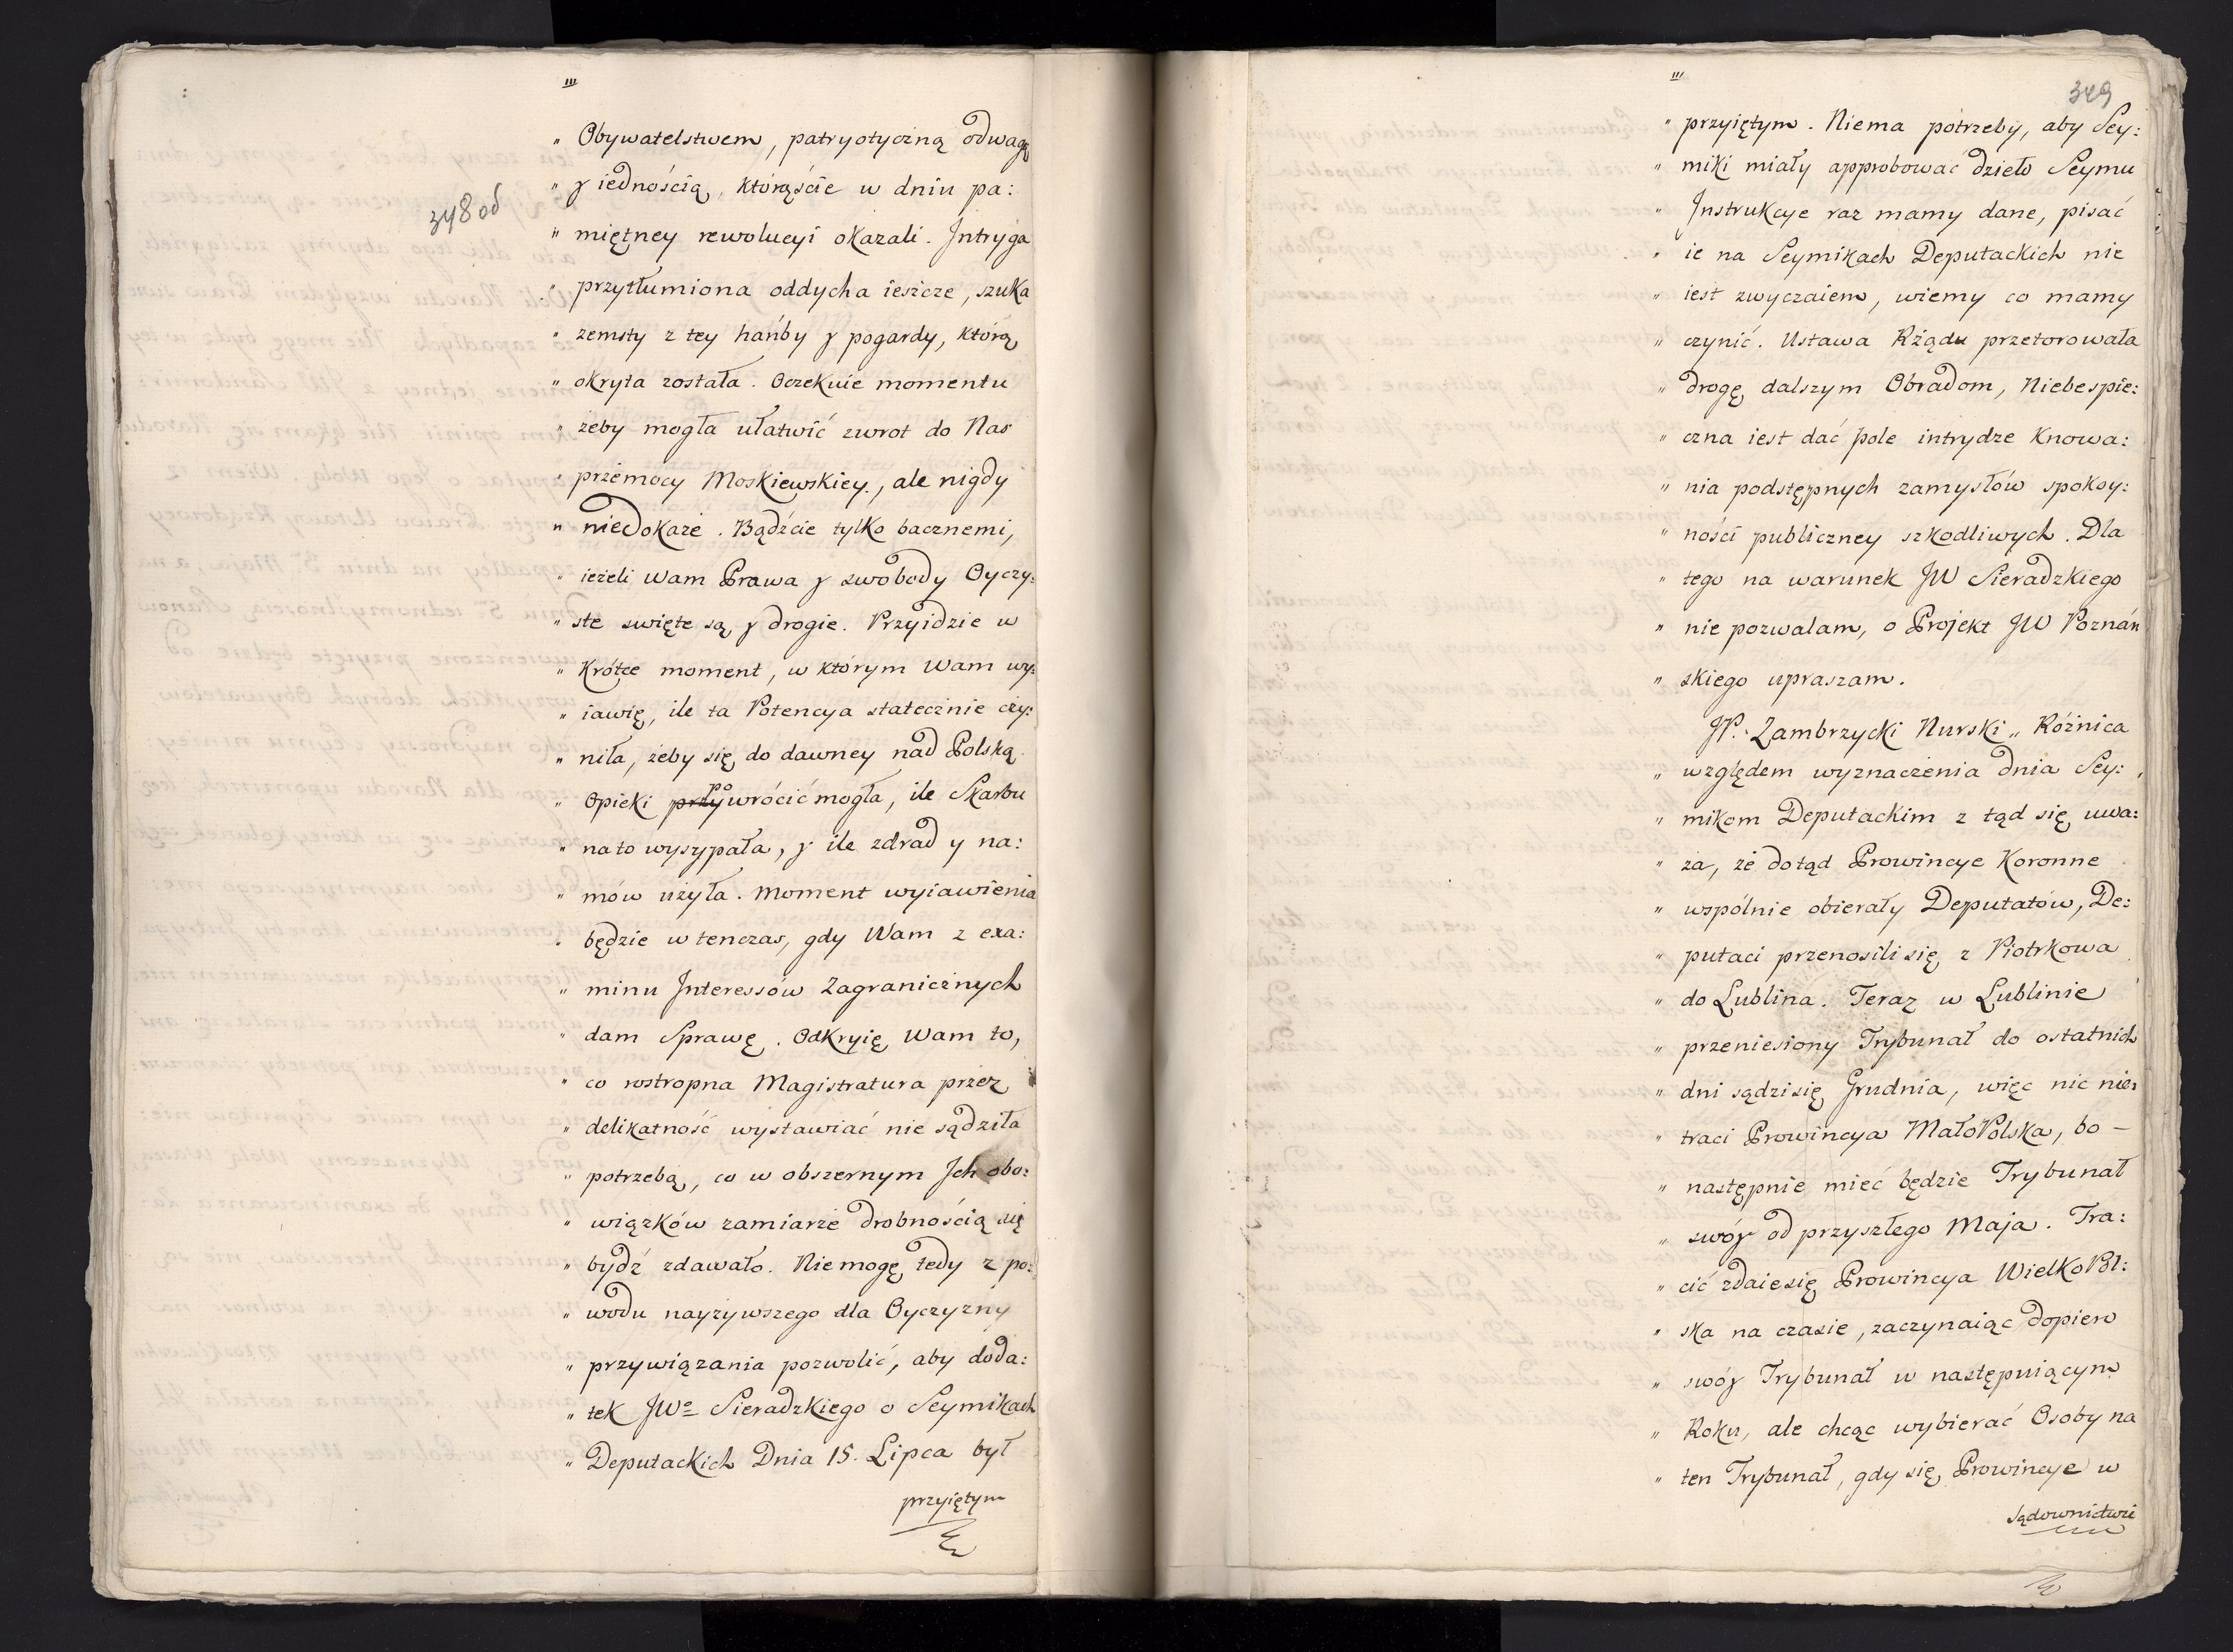 "'
" Obywatelstwem, patryotyczną odwagą
" y iednością, którąście w dniu pa:
348 od
" miętney rewolucyi okazali. Jntryga
" przytłumiona oddycha ieszcze, szuka
" zemsty z tey hańby y pogardy, którą
" okryta została. Oczekuie momentu
" żeby mogła ułatwić zwrot do Nas
" przemocy Moskiewskiey, ale nigdy
" niedokaże. Bądźcie tylko bacznemi,
" ieżeli Wam Prawa y swobody Oyczy:
" ste swięte są y drogie. Przyidzie w
" Krótce moment, w którym Wam wy:
" iawię, ile ta Potencya statecznie czy:
" niła, żeby się do dawney nad Polską
" Opieki powrócić mogła, ile Skarbu
" na to wysypała, y ile zdrad y na:
" mów użyła. Moment wyiawienia
" będzie w tenczas, gdy Wam z exa:
" minu Jnteressów Zagranicznych
" dam Sprawę. Odkryię Wam to,
" co rostropna Magistratura przez
" delikatność wystawiać nie sądziła
" potrzebą, co w obszernym Jch obo:
" wiązków zamiarze drobnością się
" bydź zdawało. Niemogę tedy z po:
" wodu nayżywszego dla Oyczyzny
" przywiązania pozwolić, aby doda:
" tek JWo Sieradzkiego o Seymikach
" Deputackich Dnia 15. Lipca był
przyiętym
"'
349
" przyiętym. Niema potrzeby, aby Sey:
" miki miały approbować dzieło Seymu
" Jnstrukcye raz mamy dane, pisać
" ie na Seymikach Deputackich nie
" iest zwyczaiem, wiemy co mamy
" czynić. Ustawa Rządu przetorowała
" drogę dalszym Obradom, Niebespie:
" czna iest dać pole intrydze Knowa:
" nia podstępnych zamysłów spokoy:
" ności publiczney szkodliwych. Dla
" tego na warunek JW Sieradzkiego
" nie pozwalam, o Projekt JW Poznań
" skiego upraszam.
JP. Zambrzycki Nurski „ Różnica
" względem wyznaczenia dnia Sey:
" mikom Deputackim z tąd się uwa:
" ża, że dotąd Prowincye Koronne
" wspólnie obierały Deputatów, De:
" putaci przenosili się z Piotrkowa
" do Lublina. Teraz w Lublinie
" przeniesiony Trybunał do ostatnich
" dni sądzi się Grudnia, więc nic nie:
" traci Prowincya MałoPolska, bo –
" następnie mieć będzie Trybunał
" swóy od przyszłego Maja. Tra:
" cić zdaie się Prowincya WielkoPol:
" ska na czasie, zaczynaiąc dopiero
" swóy Trybunał w następuiącym
" Roku, ale chcąc wybierać Osoby na
" ten Trybunał, gdy się Prowincye w
sądownictwie